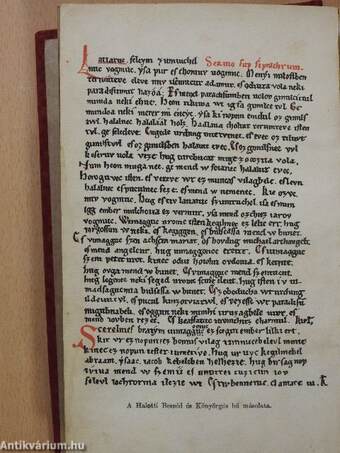 Latiatuc feleym zumtuchel Sermo sup sepulchrum.
mic vogmuc. ysa pur es chomuv uogmuc. Menyi milostben
terumteve eleve miv isemucut adamut. es odutta vola neki
paradisumut hazóá. Es mend paradisumben uolov gimilcictul
munda neki elnie. Heon tilutoa wt ig fa gimilce tvl. Ge
mundoa neki meret nu eneyc. ysa ki nopun emdul oz gimils
twl. halalnec halaláál holz. Hadlaua choltat terumteve isten
tvl. ge feledeve. Engede urdung intetvinec. es evec oz tiluvt
gimilstwl. es oz gimilsben halalut evec. Es oz gimilsnec vvl
keseruv uola vize. hug turchucat mige zocoztia vola.
Num heon muga nec. ge mend w foianec halalut evec.
Horogu vec isten. es veteve wt ez muncas vilagbele. es levn
halalnec es puculnec feze. es mend w nemenec. Kic ozvc.
miv vogmuc. Hug es tiv latiatuv szumtuchel. isa es num
igg ember mulchotia ez vermut. ysa mend ozchuz iarov
vogmuc. Wimagguc uromc isten kegilmet ez lelic ert. hug
iorgossun w neki. es kegiggen. es bulsassa mend w bunet.
Es vimagguc szen achscin mariat. es bovdug michael archangelt.
es mend angelcut. hug uimaggonoc erette. Es uimagguc
szent peter urot. kinec odut hotolm ovdonia. es ketnie.
hug ovga mend w bunet. Es vimagguc mend szentucut.
hug legenec neki seged uromc scine eleut. hug isten iv ui
madsagucmia bulsassa w bunet. Es zoboducha wt urdung
ildetuitvl. es pucul kinzotviatwl. es vezesse wt paradisu
nugulmabeli. es oggun neki munhi uruzagbele utot. es
mend iovben rezet. Es keassatuc uromchuz charmul. Kirl.
Scerelmes bratym uimagomuc ez scegin ember lilki ert.
kit vr ez nopun ez homus világ timnucebelevl mente.
kinec ez nopun testet tumetivc. hug ur uvt kegilmehel
abraam. ysaac. iacob. kebeleben helhezie. hug birsagnop
ivtua mend w szentii es unuttei cuzicun iov
felevl iochtotnia ilezie wt. Es tivbennetuc. clamate iii. K.
A Halotti Beszéd és Könyörgés hű másolata.
Antikvárium.hu